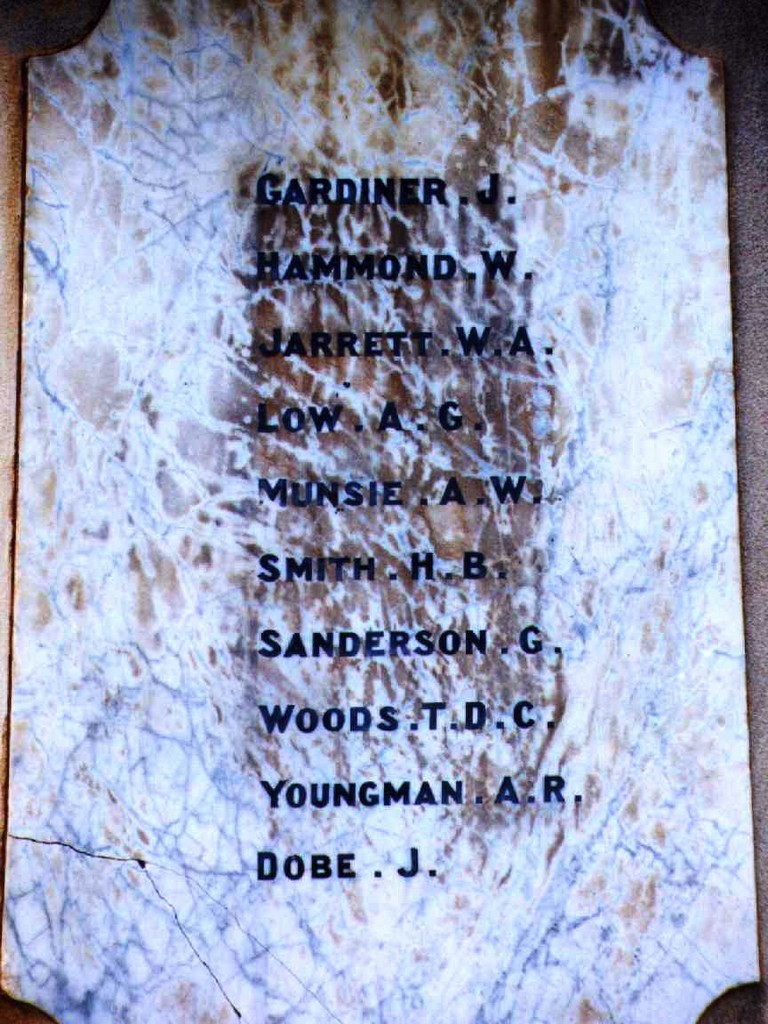 GARDINER . J.
HAMMOND . W.
JARRETT . W.A.
LOW . A . G.
MUNSIE . A . W.
SMITH . H . B.
SANDERSON . G.
WOODS . T . D . C.
YOUNGMAN . A . R.
DOBE . J.